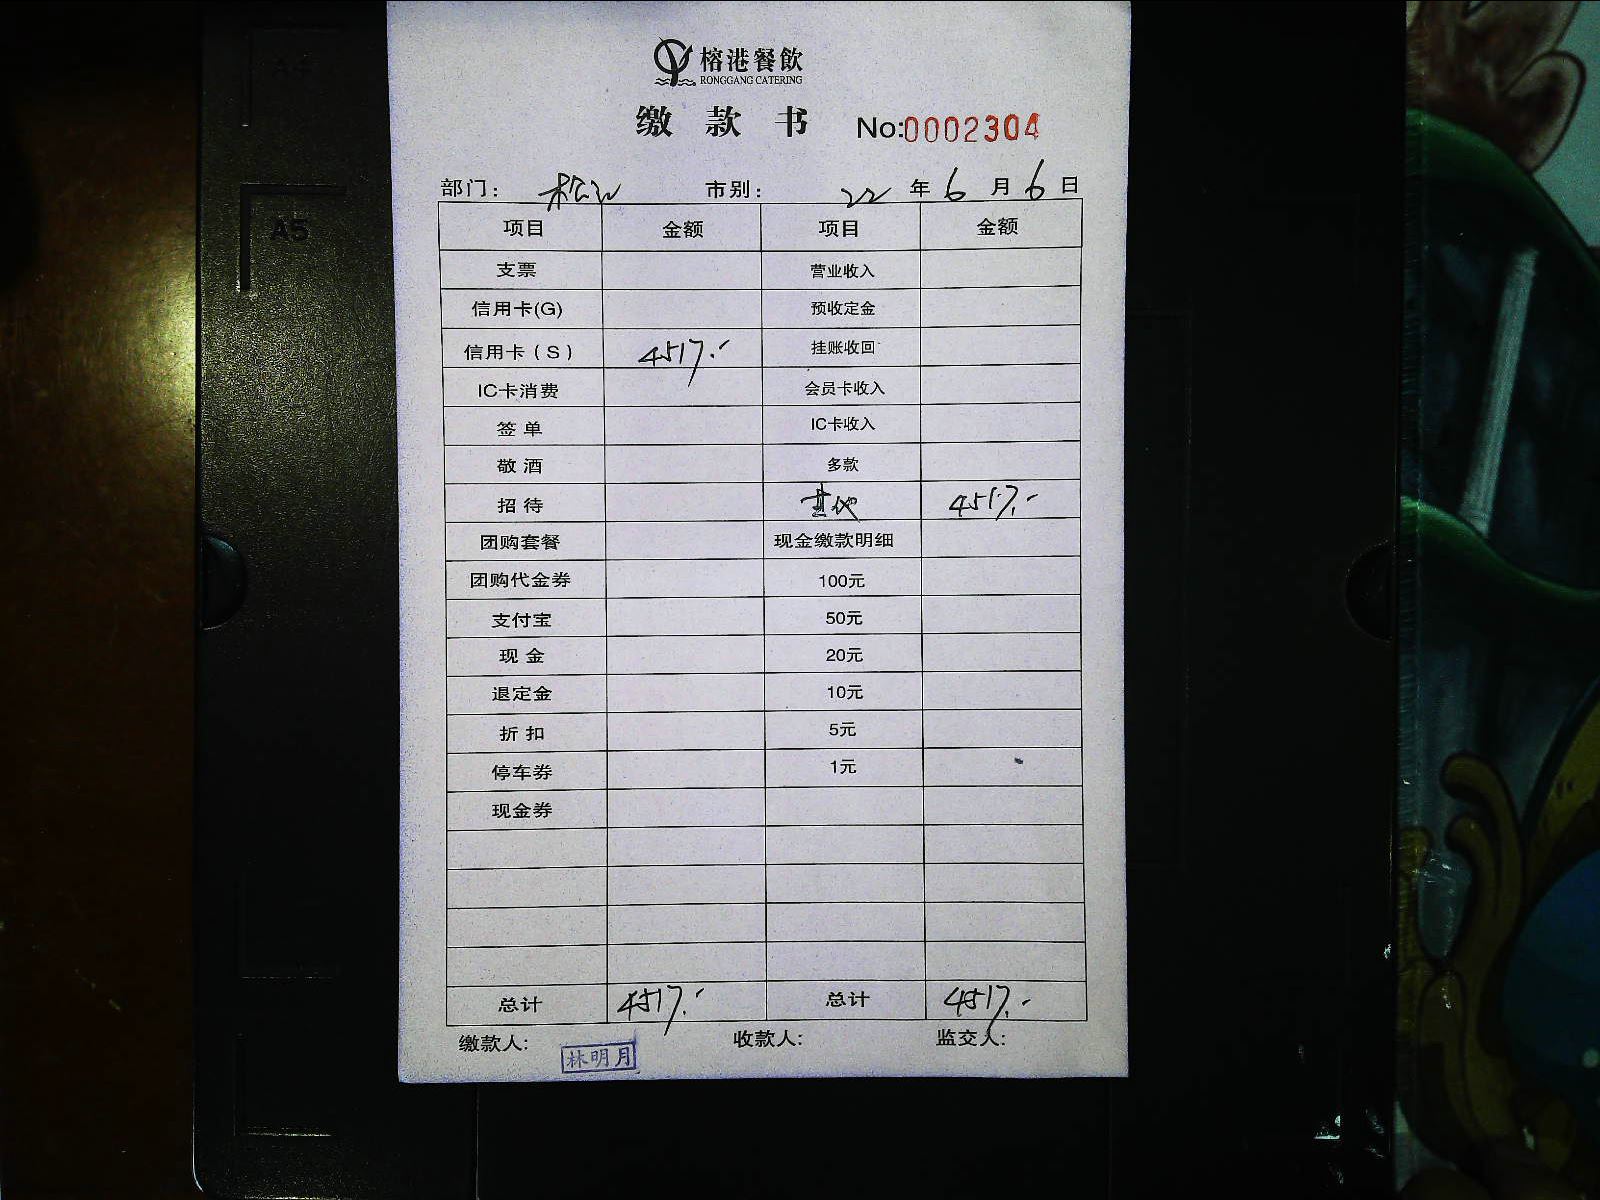 A4
A5
榕港餐飲
RONGGANG CATERING
缴款书 No:0002304
部门: 市别: 22年6月6日
项目 金额 项目 金额
支票 营业收入
信用卡(G) 预收定金
信用卡(S) 4517.- 挂账收回
IC卡消费 会员卡收入
签单 IC卡收入
敬酒 多款
招待 其他 4517.-
团购套餐 现金缴款明细
团购代金券 100元
支付宝 50元
现金 20元
退定金 10元
折扣 5元
停车券 1元
现金券
总计 4517.- 总计 4517.-
缴款人: 林明月 收款人: 监交人: